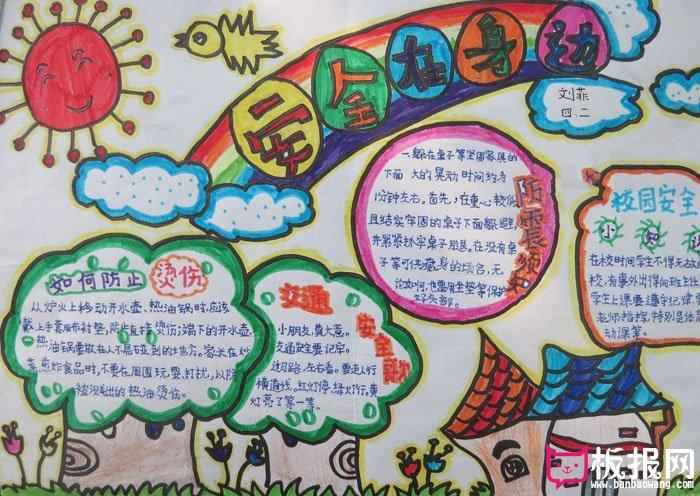 安全在身边
刘菲
四.二
一.躲在桌子等坚固家具的
下面 大的晃动时间约为
1分钟左右。首先，在重心较低
且结实牢固的桌子下面躲避
并紧紧抓牢桌子腿。在没有桌
子等可供藏身的场合，无
论如何，也要用坐垫等保护
好头部。
防震须知
校园安全
小知
在校时间学生不得无故
校，有事外出得向班主任
学生上课要遵守纪律
老师指挥，特别是体育
动课等。
如何防止烫伤
从炉火上移动开水壶、热油锅时，应该
戴上手套用布衬垫，防止直接烫伤；端下的开水壶、
热油锅要放在人不易碰到的地方。家长在炒
菜、煎炸食品时，不要在周围玩耍、打扰，以防
被溅出的热油烫伤。
交通
安全歌
小朋友，莫大意。
交通安全要记牢。
过马路，左右看。要走人行
横道线。红灯停，绿灯行，黄
灯亮了等一等。
板报网
www.banbaowang.com